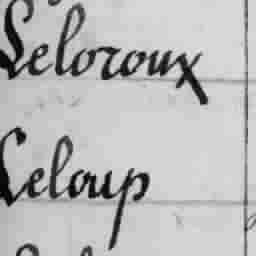 Leloroux
Leloup